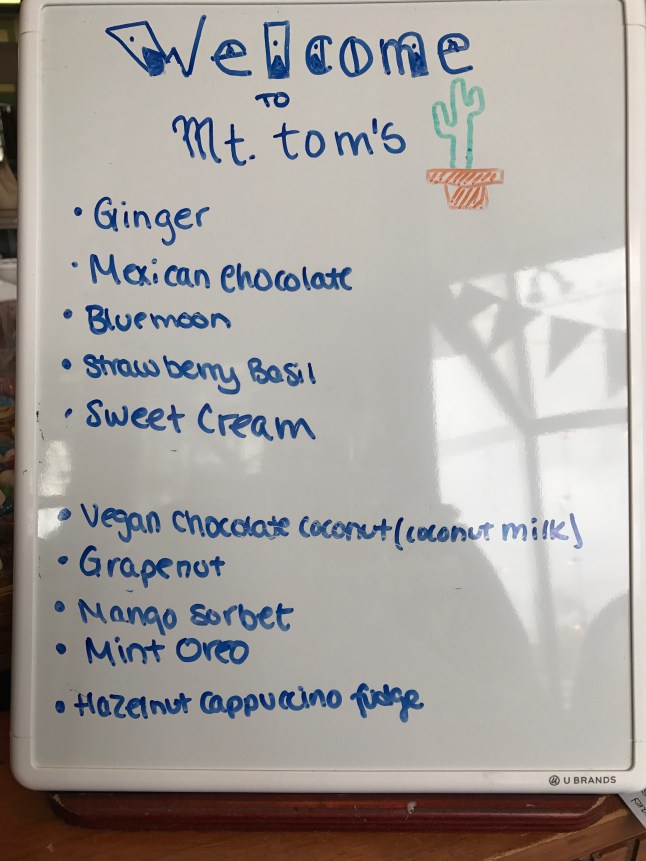 Welcome
TO
Mt. tom's
• Ginger
• Mexican chocolate
• Bluemoon
• Strawberry Basil
• Sweet Cream
• Vegan chocolate coconut (coconut milk)
• Grapenut
• Mango sorbet
• Mint Oreo
• Hazelnut cappuccino fudge
U BRANDS